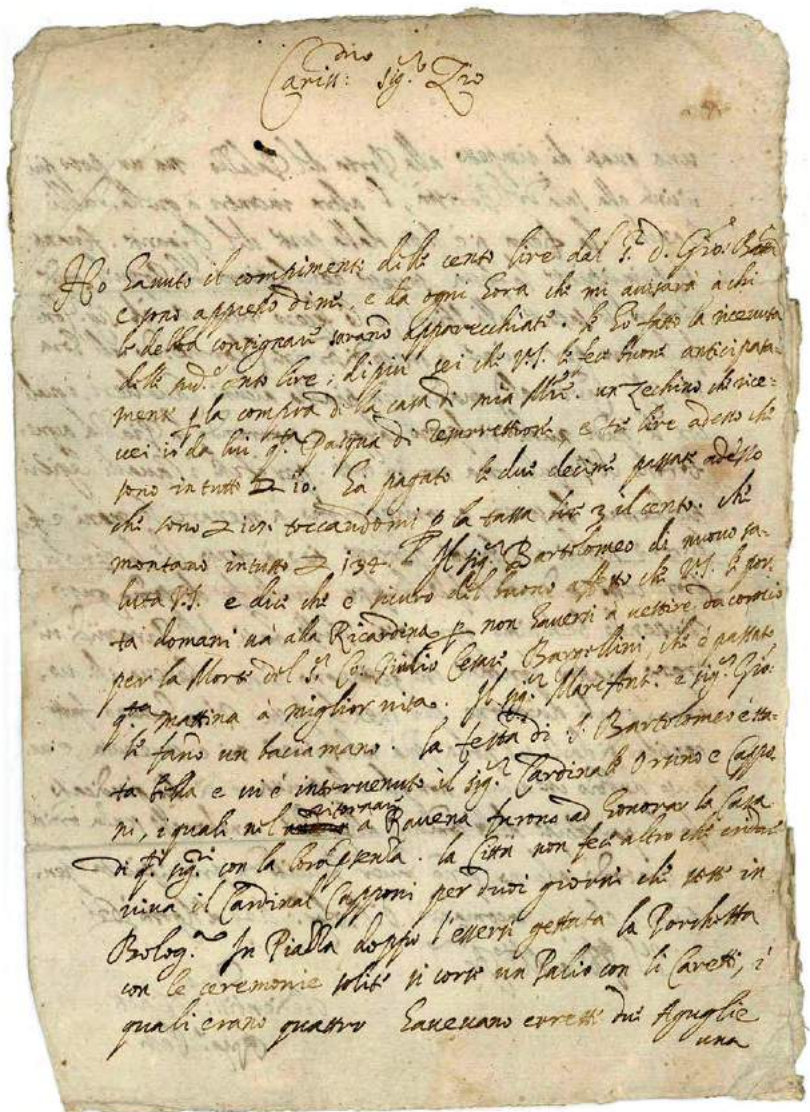 Cariss:mo sig.r Zio
Hó hauuto il compimento delle cento lire dal S.r D. Gio: Batta
e sono appresso di me, e da ogni hora che mi auisará á chi
le debba consignare sarano apparecchiate. le hó fatto la riceuuta
delle sud.e cento lire; di piú sei che V.S. le fece buone anticipata-
mente p la compra della casa di mia M.re un zechino che rice-
uei io da lui q.ta Pasqua di resurrettione, e tre lire adesso che
sono in tutto L 10. há pagato le due decime passate adesso
che sono L toccandomi p la tassa lire 3 il cento. che
montano in tutto L 134. Il sig.r Bartolomeo di nuouo sa-
luta V.S. e dice che é sicuro del buono affetto che V.S. le por-
ta domani uá alla Ricardina p non hauersi á uestire da coroccio
per la Morte del S.r Co: Giulio Cesare Bargellini, che é passato
q.ta mattina á miglior uita. Il sig.r Marc'Ant.o e sig.r Gio:
le fano un baciamano. la festa di S. Bartolomeo é sta-
ta bella e ui é interuenuto il sig.r Cardinale Orsino e Cappo-
ni, i quali nel ritornare á Rauena furono ad honorar la Casa
di q.ti sig.ri con la loro p̄senza. la Cittá non fece altro che cridare
uiua il Cardinal Capponi per duoi giorni che stette in
Bolog.a In Piazza doppo l'essersi gettata la Porchetta
con le ceremonie solite si corse un Palio con li Caretti, i
quali erano quattro haueuano errette due Aguglie
una